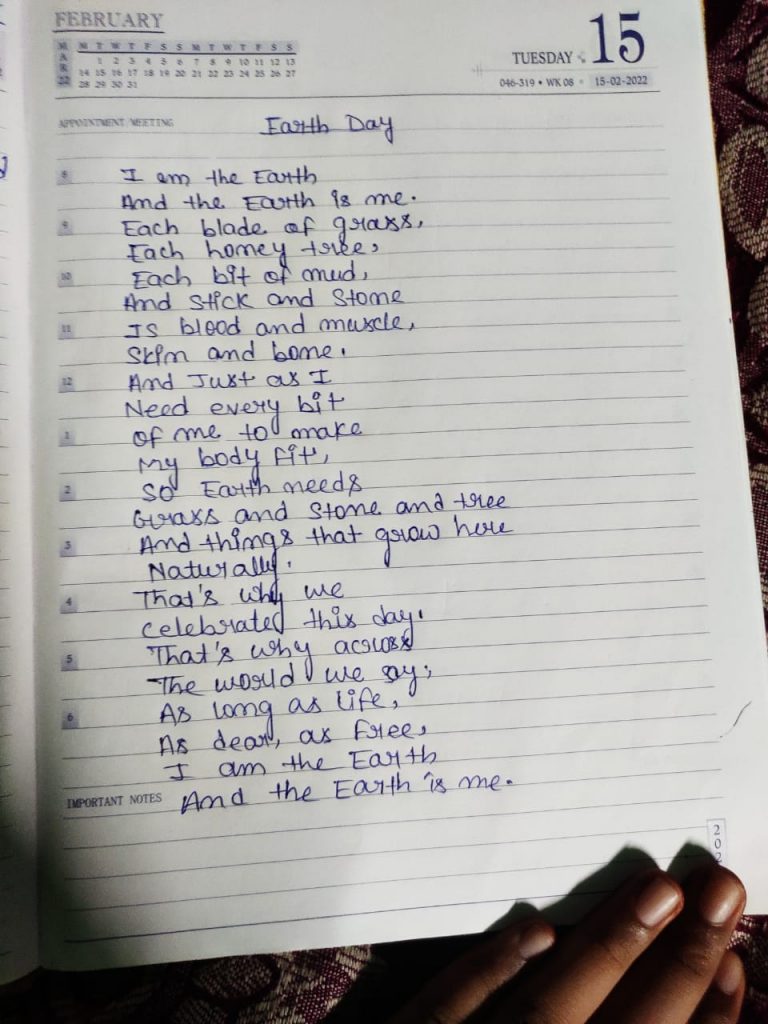 FEBRUARY
MAR 22
M T W T F S S M T W T F S S
1 2 3 4 5 6 7 8 9 10 11 12 13
14 15 16 17 18 19 20 21 22 23 24 25 26 27
28 29 30 31
TUESDAY 15
046-319 • WK 08 • 15-02-2022
APPOINTMENT MEETING
Earth Day
8 I am the Earth
And the Earth is me.
9 Each blade of grass,
Each honey tree,
10 Each bit of mud,
And stick and stone
11 Is blood and muscle,
Skin and bone.
12 And Just as I
Need every bit
1 of me to make
My body fit,
2 So Earth needs
Grass and stone and tree
3 And things that grow here
Naturally.
4 That's why we
celebrated this day.
5 That's why across
The world we say;
6 As long as life,
As dear, as free,
I am the Earth
IMPORTANT NOTES And the Earth is me.
202